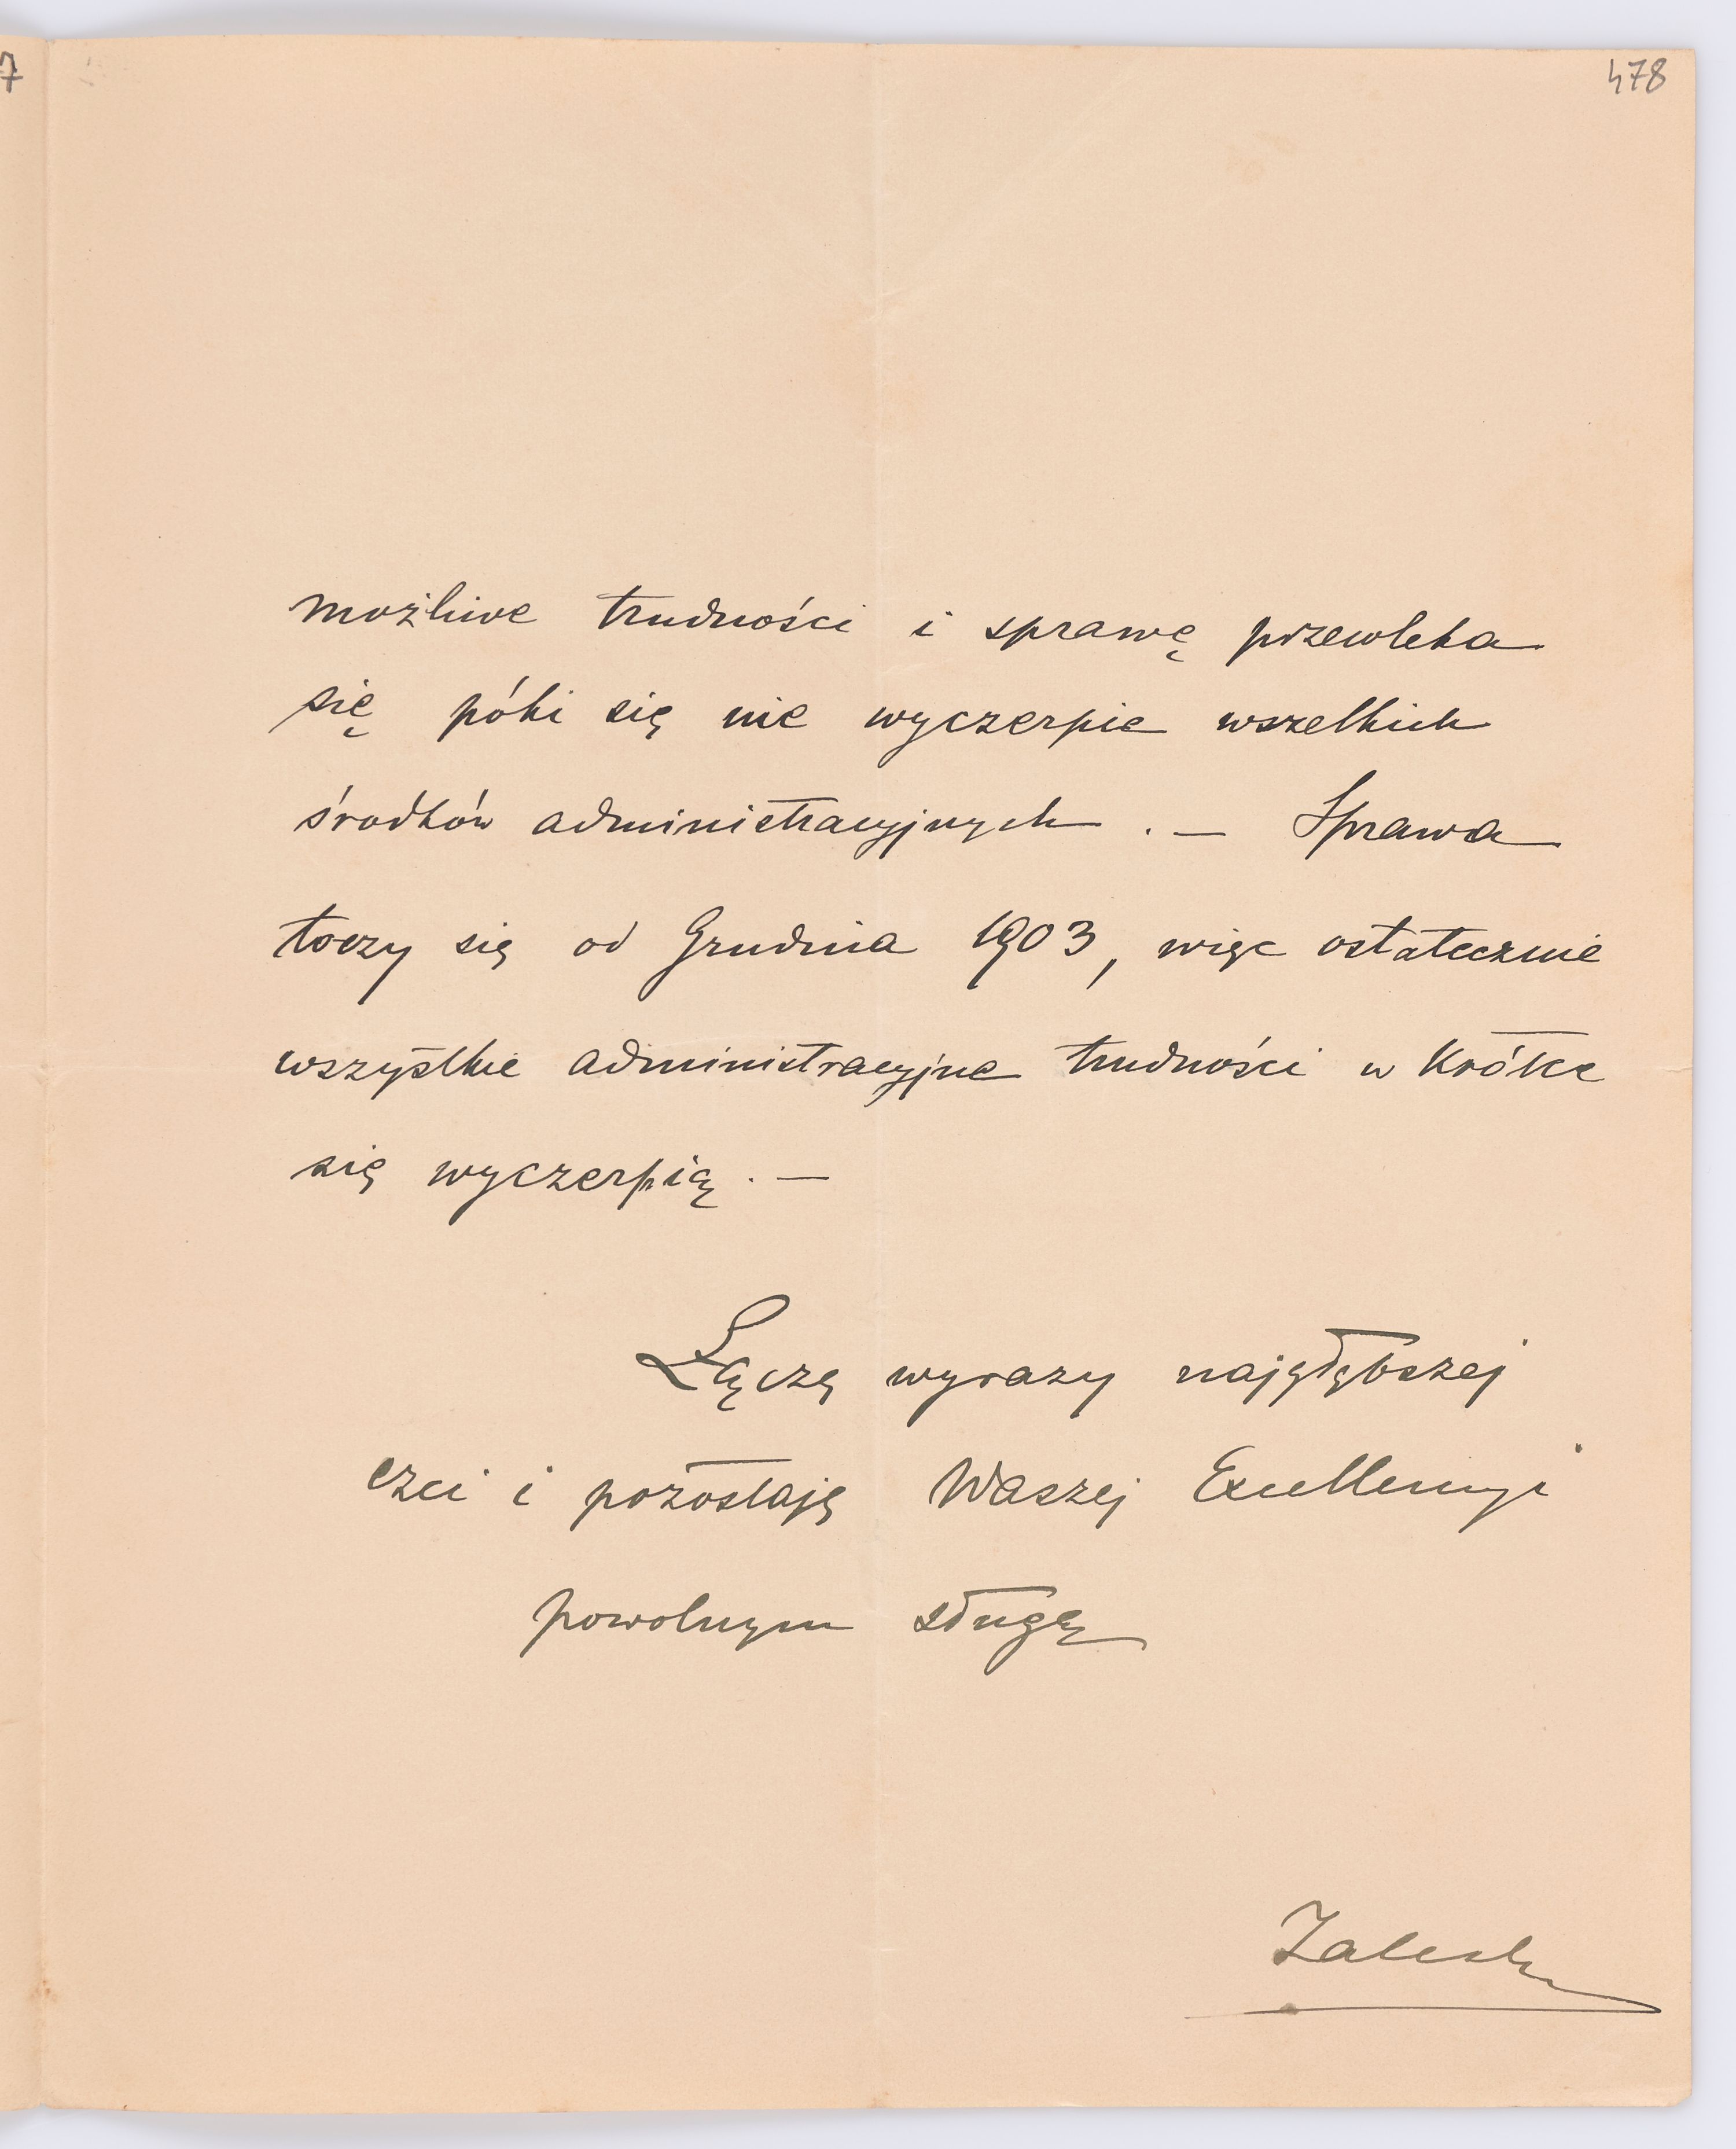 7
478
możliwe trudności i sprawę przewleka
się póki się nie wyczerpie wszelkich
środków administracyjnych . — Sprawa
toczy się od Grudnia 1903, więc ostatecznie
wszystkie administracyjne trudności w krótce
się wyczerpią . —
Łączę wyrazy najgłębszej
czci i pozostaję Waszej Excellencyi
powolnym sługą
Zaleski